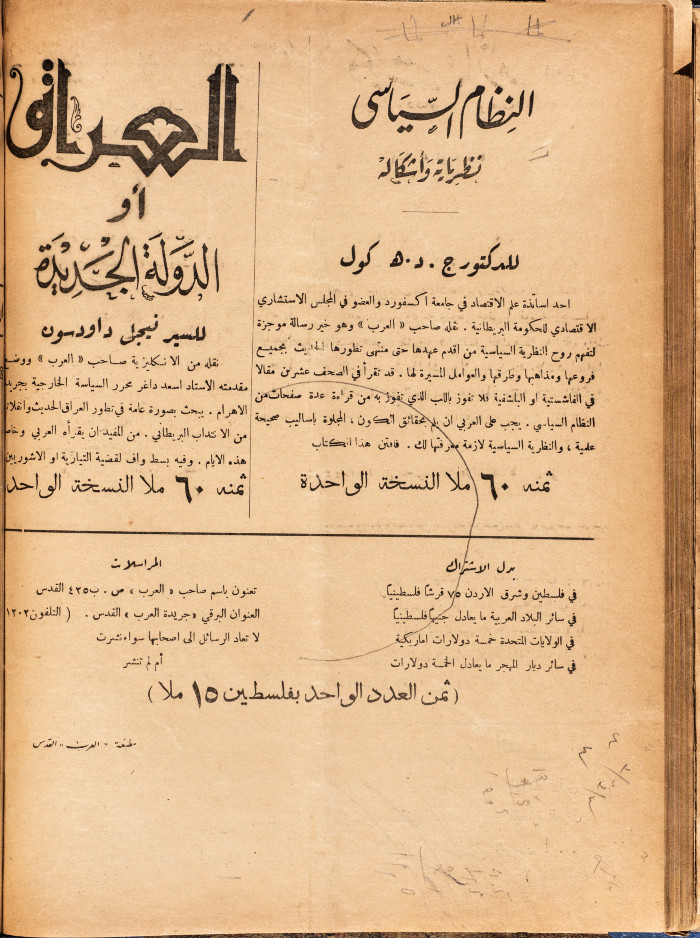 النظام السياسي
نظرياته وأشكاله
للدكتور ج . د . ه كول
احد اساتذة علم الاقتصاد في جامعة اكسفورد والعضو في المجلس الاستشاري
الاقتصادي للحكومة البريطانية . نقله صاحب « العرب » وهو خير رسالة موجزة
لتفهم روح النظرية السياسية من اقدم عهدها حتى منتهى تطورها الحديث بجميع
فروعها ومذاهبها وطرقها والعوامل المسيرة لها . قد تقرأ في الصحف عشرين مقالا
في الفاشستية او البلشفية فلا تفوز باللب الذي تفوز به من قراءة عدة صفحات من
النظام السياسي . يجب على العربي ان يلم بحقائق الكون ، المجلوة باساليب صحيحة
علمية ، والنظرية السياسية لازمة معرفتها لك . فاقتن هذا الكتاب
ثمنه ٦٠ ملا النسخة الواحدة
العراق
أو
الدولة الجديدة
للسير نيجل داودسون
نقله من الانكليزية صاحب « العرب » ووضع
مقدمته الاستاذ اسعد داغر محرر السياسة الخارجية بجريدة
الاهرام . يبحث بصورة عامة في تطور العراق الحديث وانقلا
من الانتداب البريطاني . من المفيد ان يقرأه العربي وخاصة
هذه الايام . وفيه بسط واف لقضية التيارية او الاشوريين
ثمنه ٦٠ ملا النسخة الواحد
بدل الاشتراك
في فلسطين وشرق الاردن ٧٥ قرشا فلسطينيا
في سائر البلاد العربية ما يعادل جنيها فلسطينيا
في الولايات المتحدة خمسة دولارات اماريكية
في سائر ديار المهجر ما يعادل الخمسة دولارات
المراسلات
تعنون باسم صاحب « العرب » ص . ب ٤٢٥ القدس
العنوان البرقي « جريدة العرب » القدس . ( التلفون ١٢٠٢
لا تعاد الرسائل الى اصحابها سواء نشرت
أم لم تنشر
( ثمن العدد الواحد بفلسطين ١٥ ملا )
مطبعة « العرب » القدس